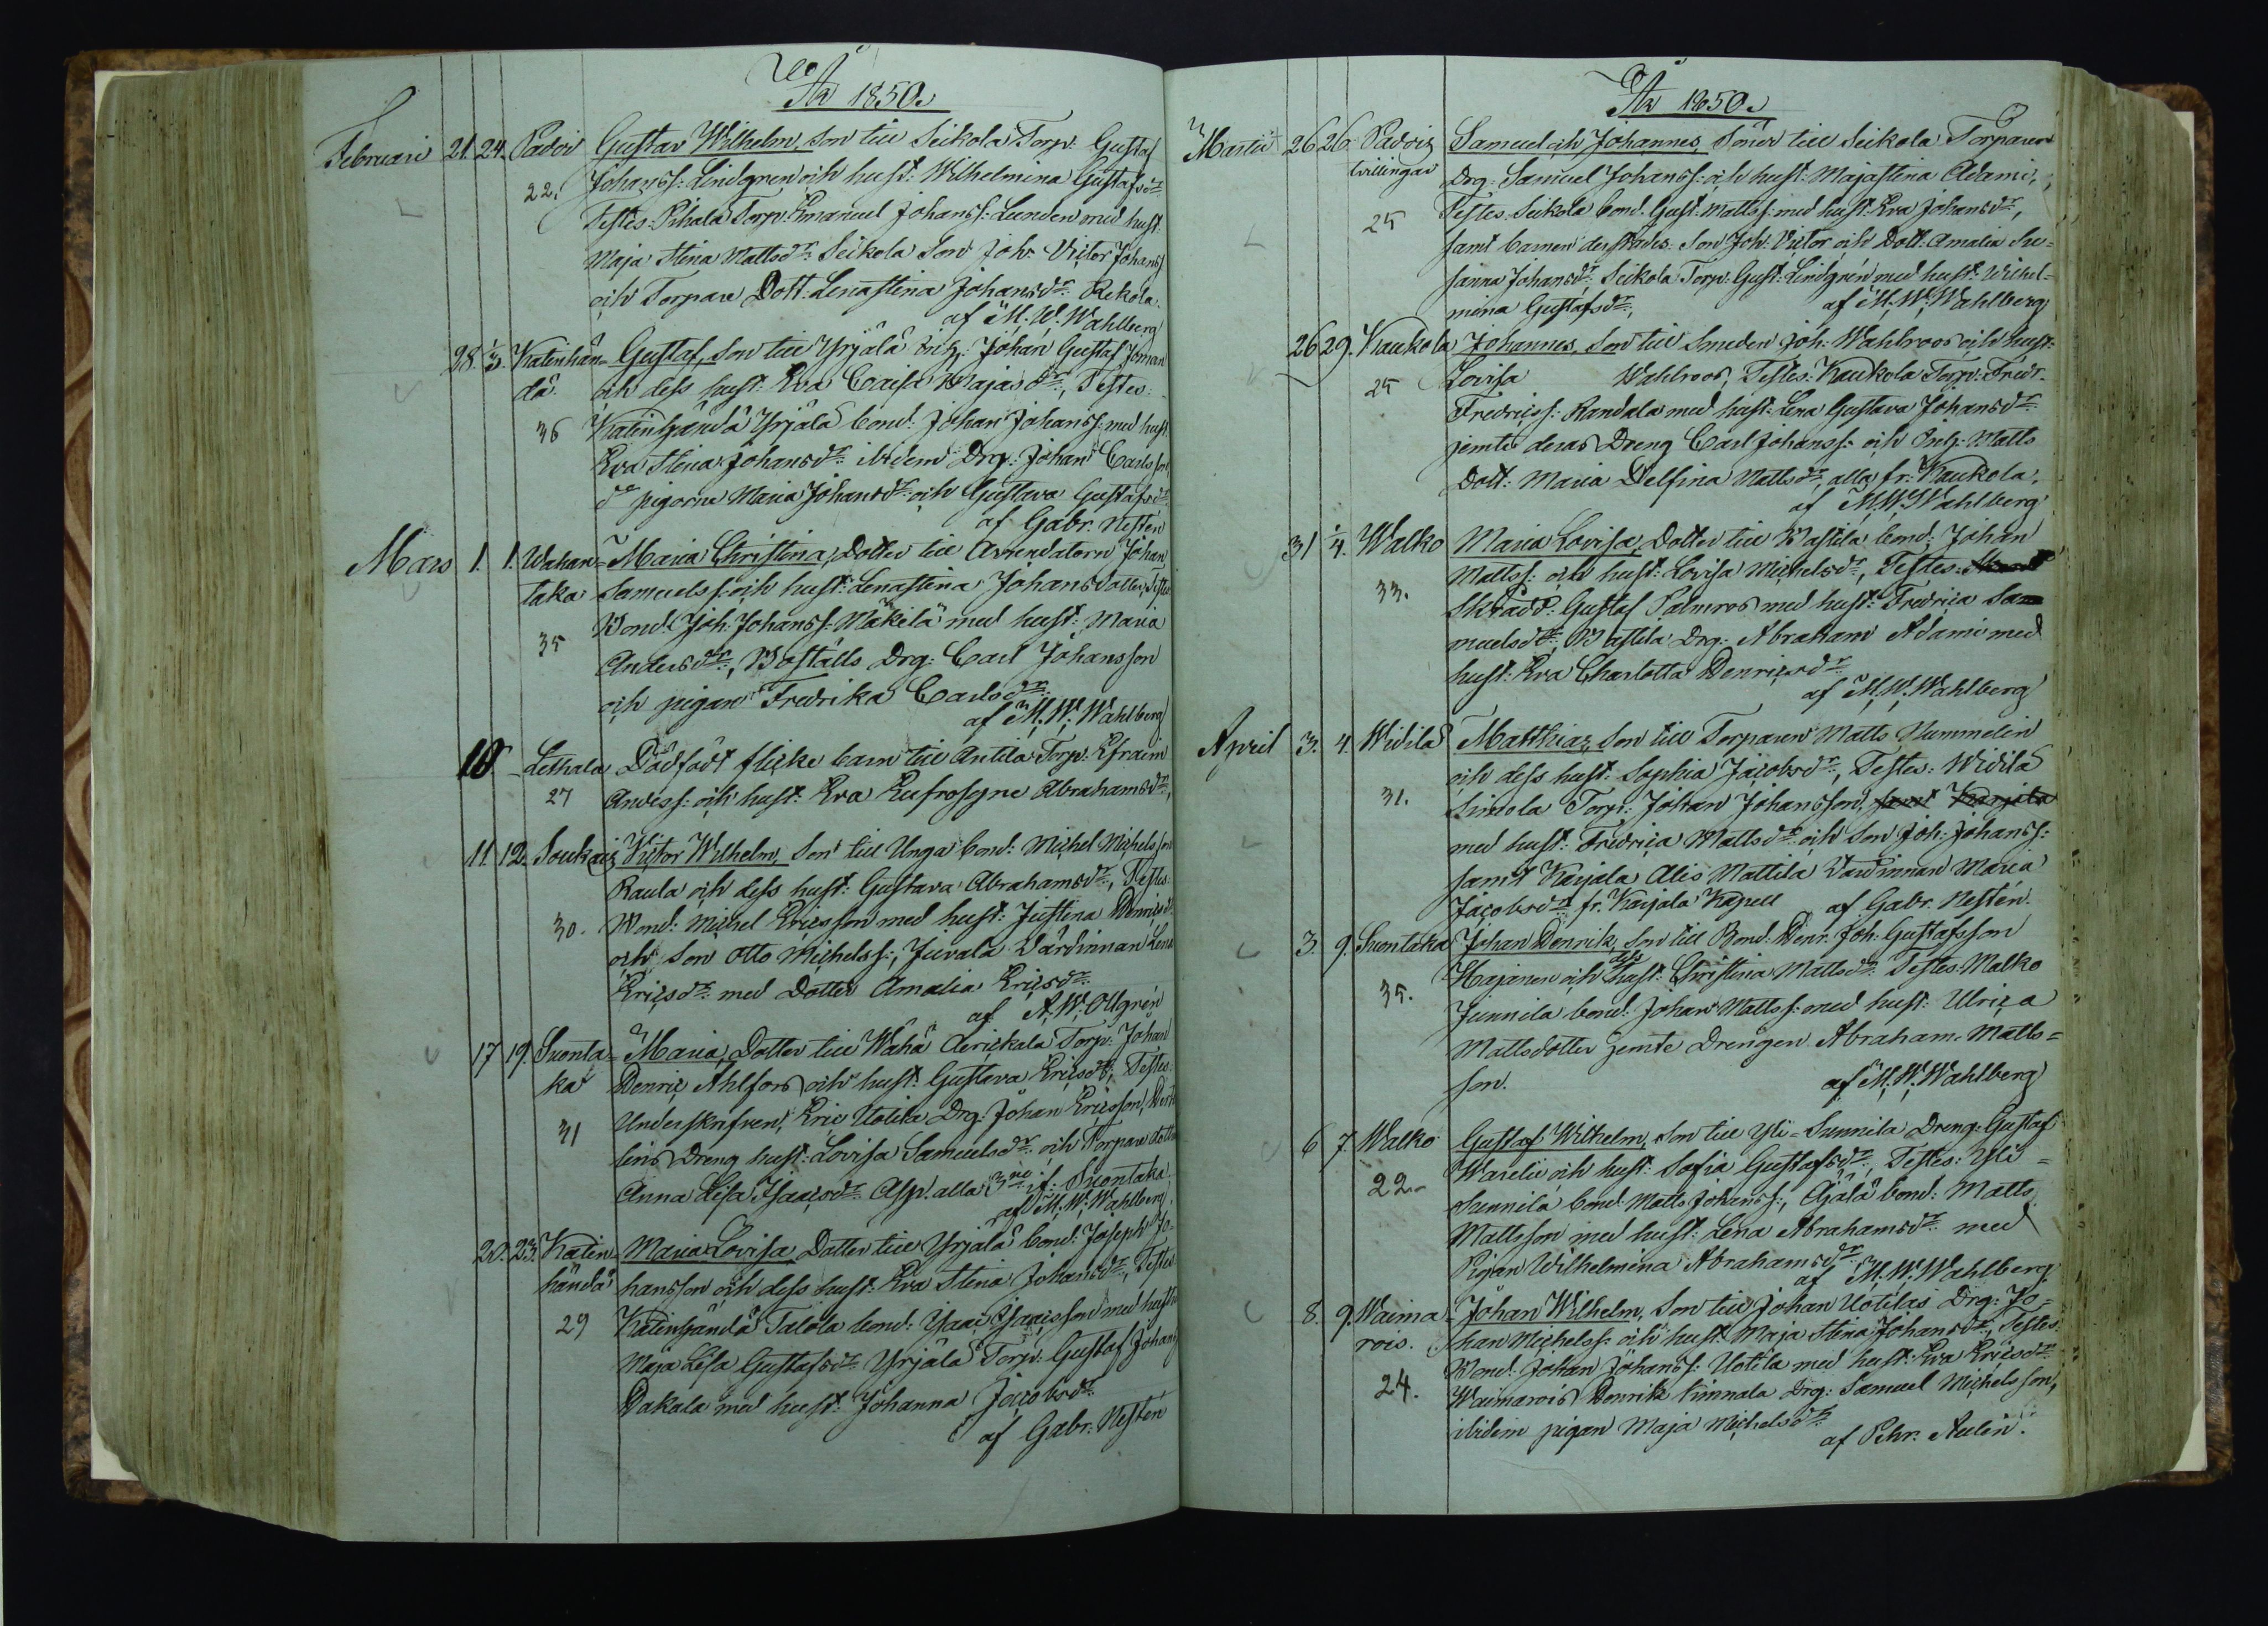 År 1850.
Februari 21. 24. Padois Gustav Wilhelm, son till Seikola Torp: Gustaf
22. Johanss: Lindgren och hust: Wilhelmina Gustafsdr
Testes: Pihala Torp: Emanuel Johanss: Lunden med hust.
Maja Stina Mattsdr Seikola Son Joh: Victor Johanss
och Torpare Dott: Lenastina Johansdr Rekola.
af M. W. Wahlberg
28. 1/3. Katinhän= Gustaf, son till Yrjälä Inh: Johan Gustaf Joman
dä. och dess hust: Eva Caisa Majasdr, Testes:
36 Katinhändä Yrjälä bond: Johan Johanss: med hust
Eva Stina Johansdr ibidem Drg: Johan Carlsson
do pigorne Maria Johansdr och Gustava Gustafsdr
af Gabr. Nestén
Mars 1. 1. Wahan= Maria Christina, Dotter till Arrendatorn Johan
taka Samuelss: och hust: Lenastina Johansdotter, Testes
35 Bond: Joh: Johanss: Mäkilä med hust: Maria
Andersdr, Boställs Drg: Carl Johansson
och pigan Fredrika Carlsdr
af M. W. Wahlberg
10. Lethala Dödfödt flicke barn till Antila Torp: Efraim
27 Anderss: och hust: Eva Eufrosyne Abrahamsdr,
11. 12. Soukais Victor Wilhelm, Son till Unga bond: Michel Michelsson
Raula och dess hust: Gustava Abrahamsdr, Testes
30. Bond: Michel Ericsson med hust: Justina Henricsdr
och son Otto Michelss:, Juvala Värdinnan Lena
Ericsdr med Dotter Amalia Ericsdr
af A. W. Ollgrén
17 19. Suonta= Maria, Dotter till Wähä Äirickala Torp: Johan
ka Henric Ahlfors och hust: Gustava Ericsdr, Testes
31 Underskrifven, Eric Uotila Drg: Johan Ericsson,
lins Dreng hust: Lovisa Samuelsdr och Torpare dotter
Anna Lisa Isaacsdr Asp. alla 3ne if: Suontaka
af M. W. Wahlberg
20. 23. Katin= Maria Lovisa, Dotter till Yrjälä bond: Joseph Jo=
händä hansson och dess hust: Eva Stina Johansdr, Testes
29 Katinhändä Talola bond: Isaac Isaacsson med hustru
Maja Lisa Gustafsdr Yrjälä Torp: Gustaf Johanss
Hakala med hust: Johanna Jacobsdr
af Gabr. Nestén
År 1850.
Martii 26 26. Padois Samuel och Johannes, Söner till Seikola Torparen
tvillingar Drg: Samuel Johanss: och hust: Majastina Adami,
25 Testes: Seikola bond: Gust: Mattss: med hust: Eva Johansdr,
samt barnen derstädes: Son Joh: Victor och Dott: Amalia Su=
sanna Johansdr Seikola Torp: Gust: Lindgrén med hust: Wilhel=
mina Gustafsdr, af M. W. Wahlberg
26 29. Kaukola Johannes, son till Smeden Joh: Wahlroos och hust:
25 Lovisa Wahlroos, Testes: Kaukola Torp: Fredr.
Fredricss: Randala med hust: Lena Gustava Johansdr
jemte deras Dreng Carl Johanss: och Inh: Matts
Dott: Maria Delfina Mattsdr, alla fr. Kaukola.
af M. W. Wahlberg
31 1/4. Walko Maria Lovisa, Dotter till Wastila bond: Johan
33. Mattss: och hust: Lovisa Michelsdr, Testes:
Skrädd: Gustaf Palmros med hust: Fredrica Sa=
muelsdr, Wastila Drg: Abraham Adami med
hust: Eva Charlotta Henricsdr
af M. W. Wahlberg
April 3. 4. Widilä Matthias, Son till Torparen Matts Nummelin
och dess hust: Sophia Jacobsdr, Testes: Widilä
31. Simola Torp: Johan Johansson, samt Karjala
med hust: Fredrica Mattsdr och Son Joh: Johanss:
samt Karjala Alis Mattila Värdinnan Maria
Jacobsdr fr. Karjala Kapell af Gabr. Nestén.
3. 9. Suontaka Johan Henrik, Son till Bond: Henr. Joh: Gustafsson
Hajanen och dess hust: Christina Mattsdr Testes: Walko
35. Junnila bond: Johan Mattss: med hust: Ulrica
Mattsdotter jemte Drengen Abraham Matts=
son. af M. W. Wahlberg
6 7. Walko Gustaf Wilhelm, Son till Yli=Sunnila Dreng: Gustaf
22. Warelii och hust: Sofia Gustafsdr, Testes: Yli=
Sunnila bond: Matts Johanss:, Äjälä bond: Matts
Mattsson med hust: Lena Abrahamsdr med
Pigan Wilhelmina Abrahamsdr
af M. W. Wahlberg
8. 9. Waima= Johan Wilhelm, Son till Johan Uotilas Drg: Jo=
rois. han Michelss: och hust: Maja Stina Johansdr, Testes
24. Bond: Johan Johanss: Uotila med hust: Eva Ericsdr
Waimarois Henrik Kinnala Drg: Samuel Michelsson,
ibidem pigan Maja Michelsdr
af Pehr. Aulin.